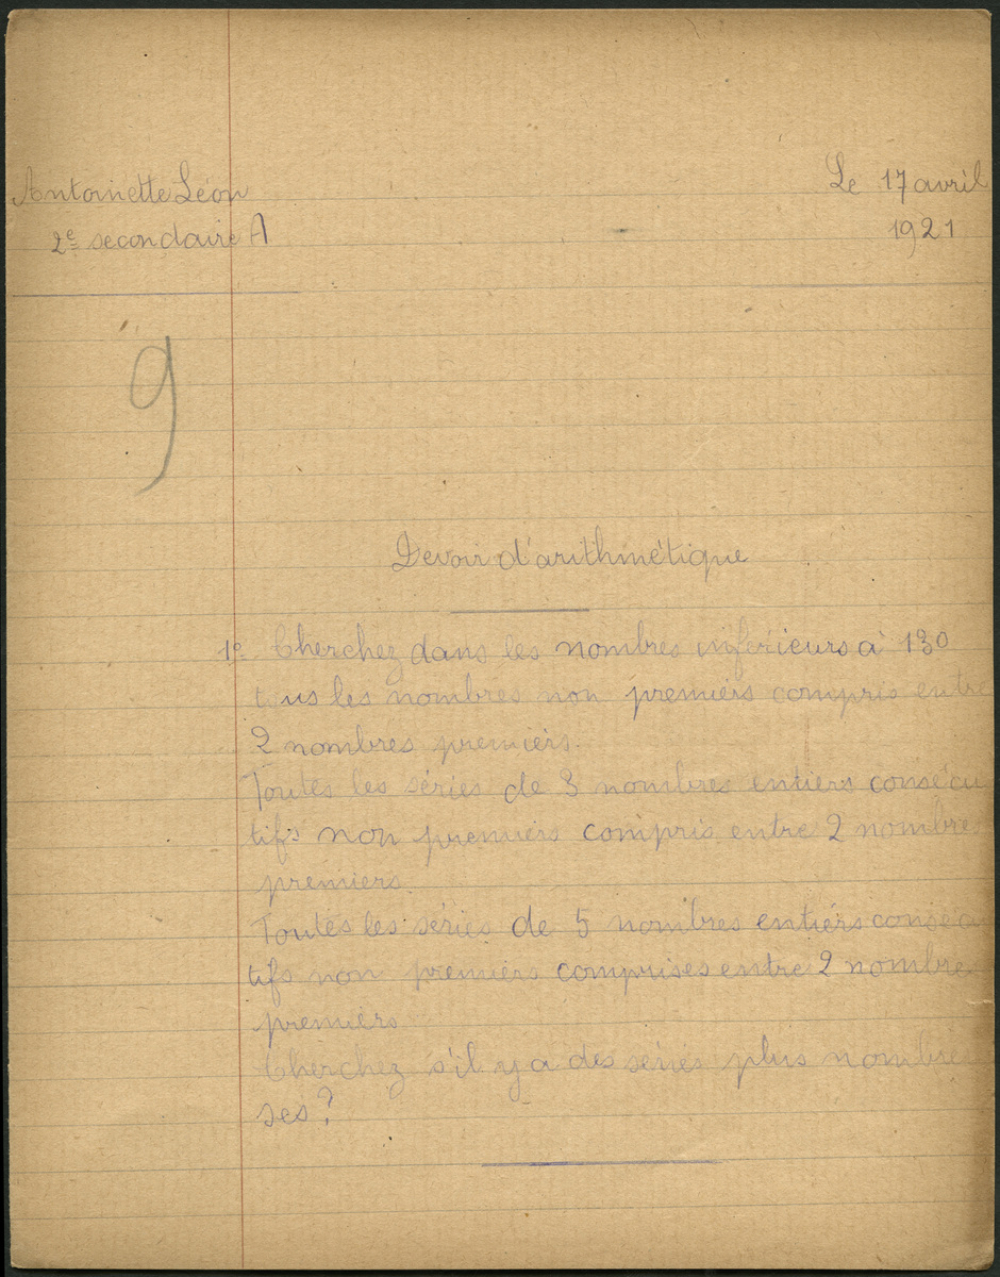 Antoinette Léon
Le 17 avril
2e secondaire A
1921
9
Devoir d'arithmétique
1e Cherchez dans les nombres inférieurs à 130
tous les nombres non premiers compris entre
2 nombres premiers.
Toutes les séries de 3 nombres entiers consécu
tifs non premiers compris entre 2 nombres
premiers.
Toutes les séries de 5 nombres entiers consécu
tifs non premiers comprises entre 2 nombres
premiers
Cherchez s'il y a des séries plus nombreu
ses?